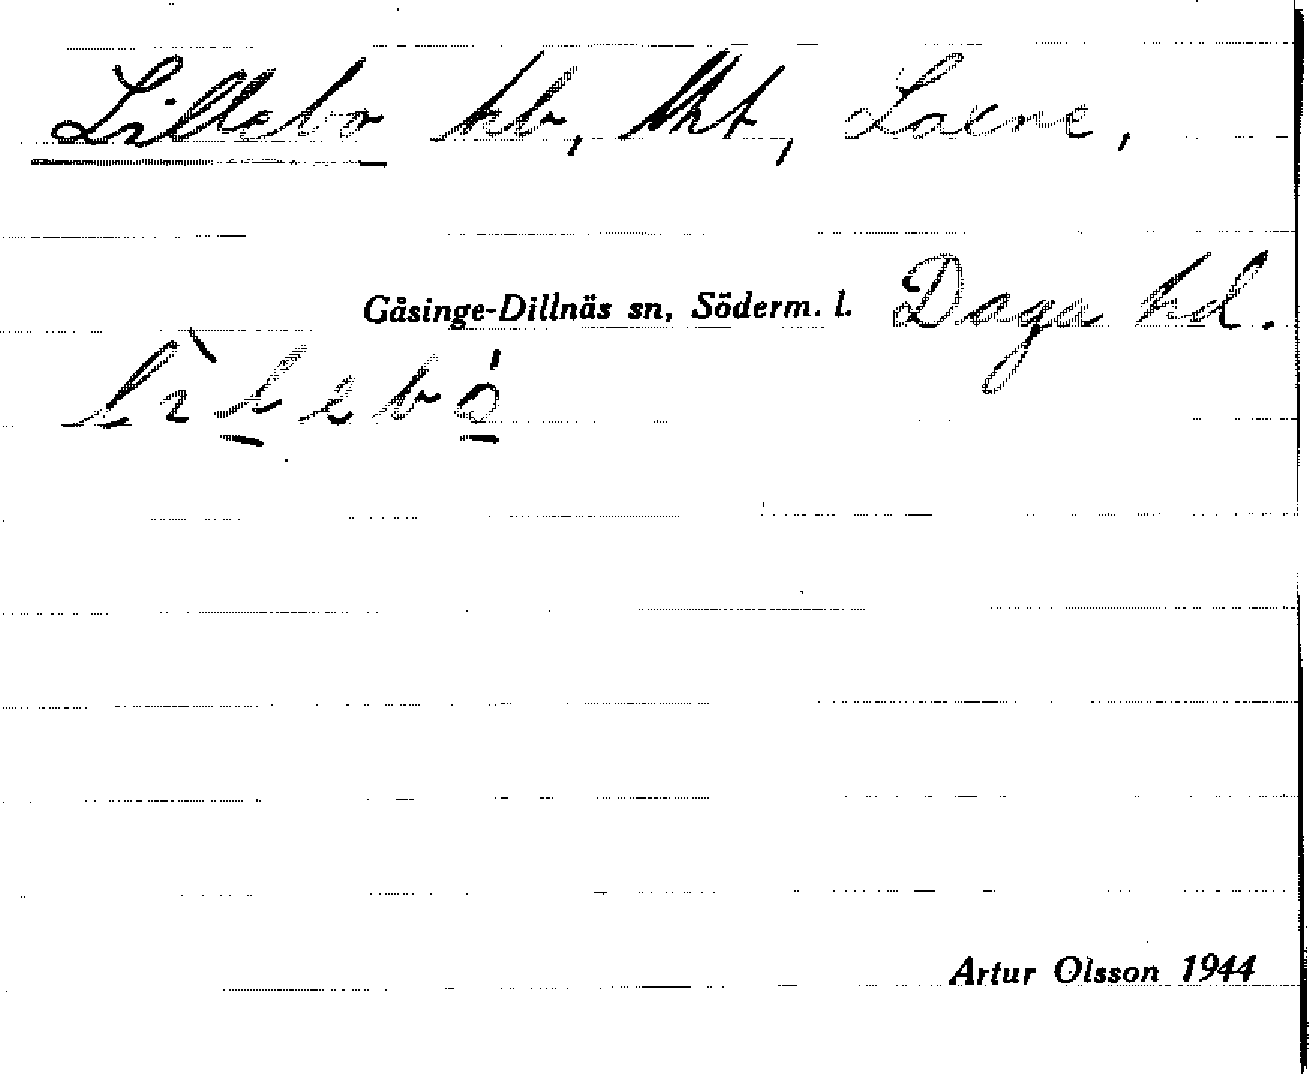 Lillebo hb, tkt, Laxne,
Gåsinge-Dillnäs sn, Söderm. l. Daga hd.
lìlebó
Artur Olsson 1944